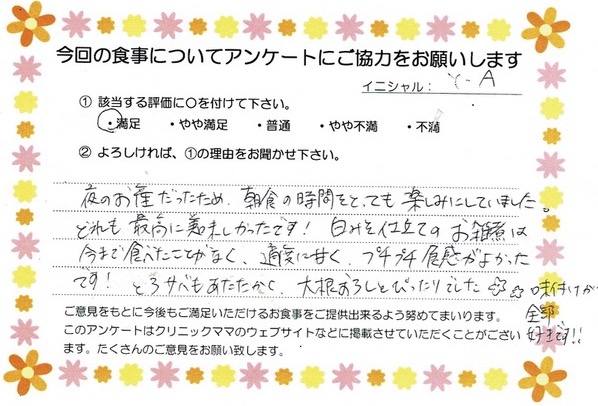 今回の食事についてアンケートにご協力をお願いします
イニシャル: Y-A
① 該当する評価に○を付けて下さい。
・満足 ・やや満足 ・普通 ・やや不満 ・不満
② よろしければ、①の理由をお聞かせ下さい。
夜のお産だったため、朝食の時間をとっても楽しみにしていました。
どれも最高に美味しかったです! 白みそ仕立てのお雑煮は
今まで食べたことがなく、適度に甘く、プチプチ食感がよかった
です! とろサバもあたたかく、大根おろしとぴったりでした☆☆ 味付けが
全部
好きです!!
ご意見をもとに今後もご満足いただけるお食事をご提供出来るよう努めてまいります。
このアンケートはクリニックママのウェブサイトなどに掲載させていただくことがござい
ます。たくさんのご意見をお願い致します。